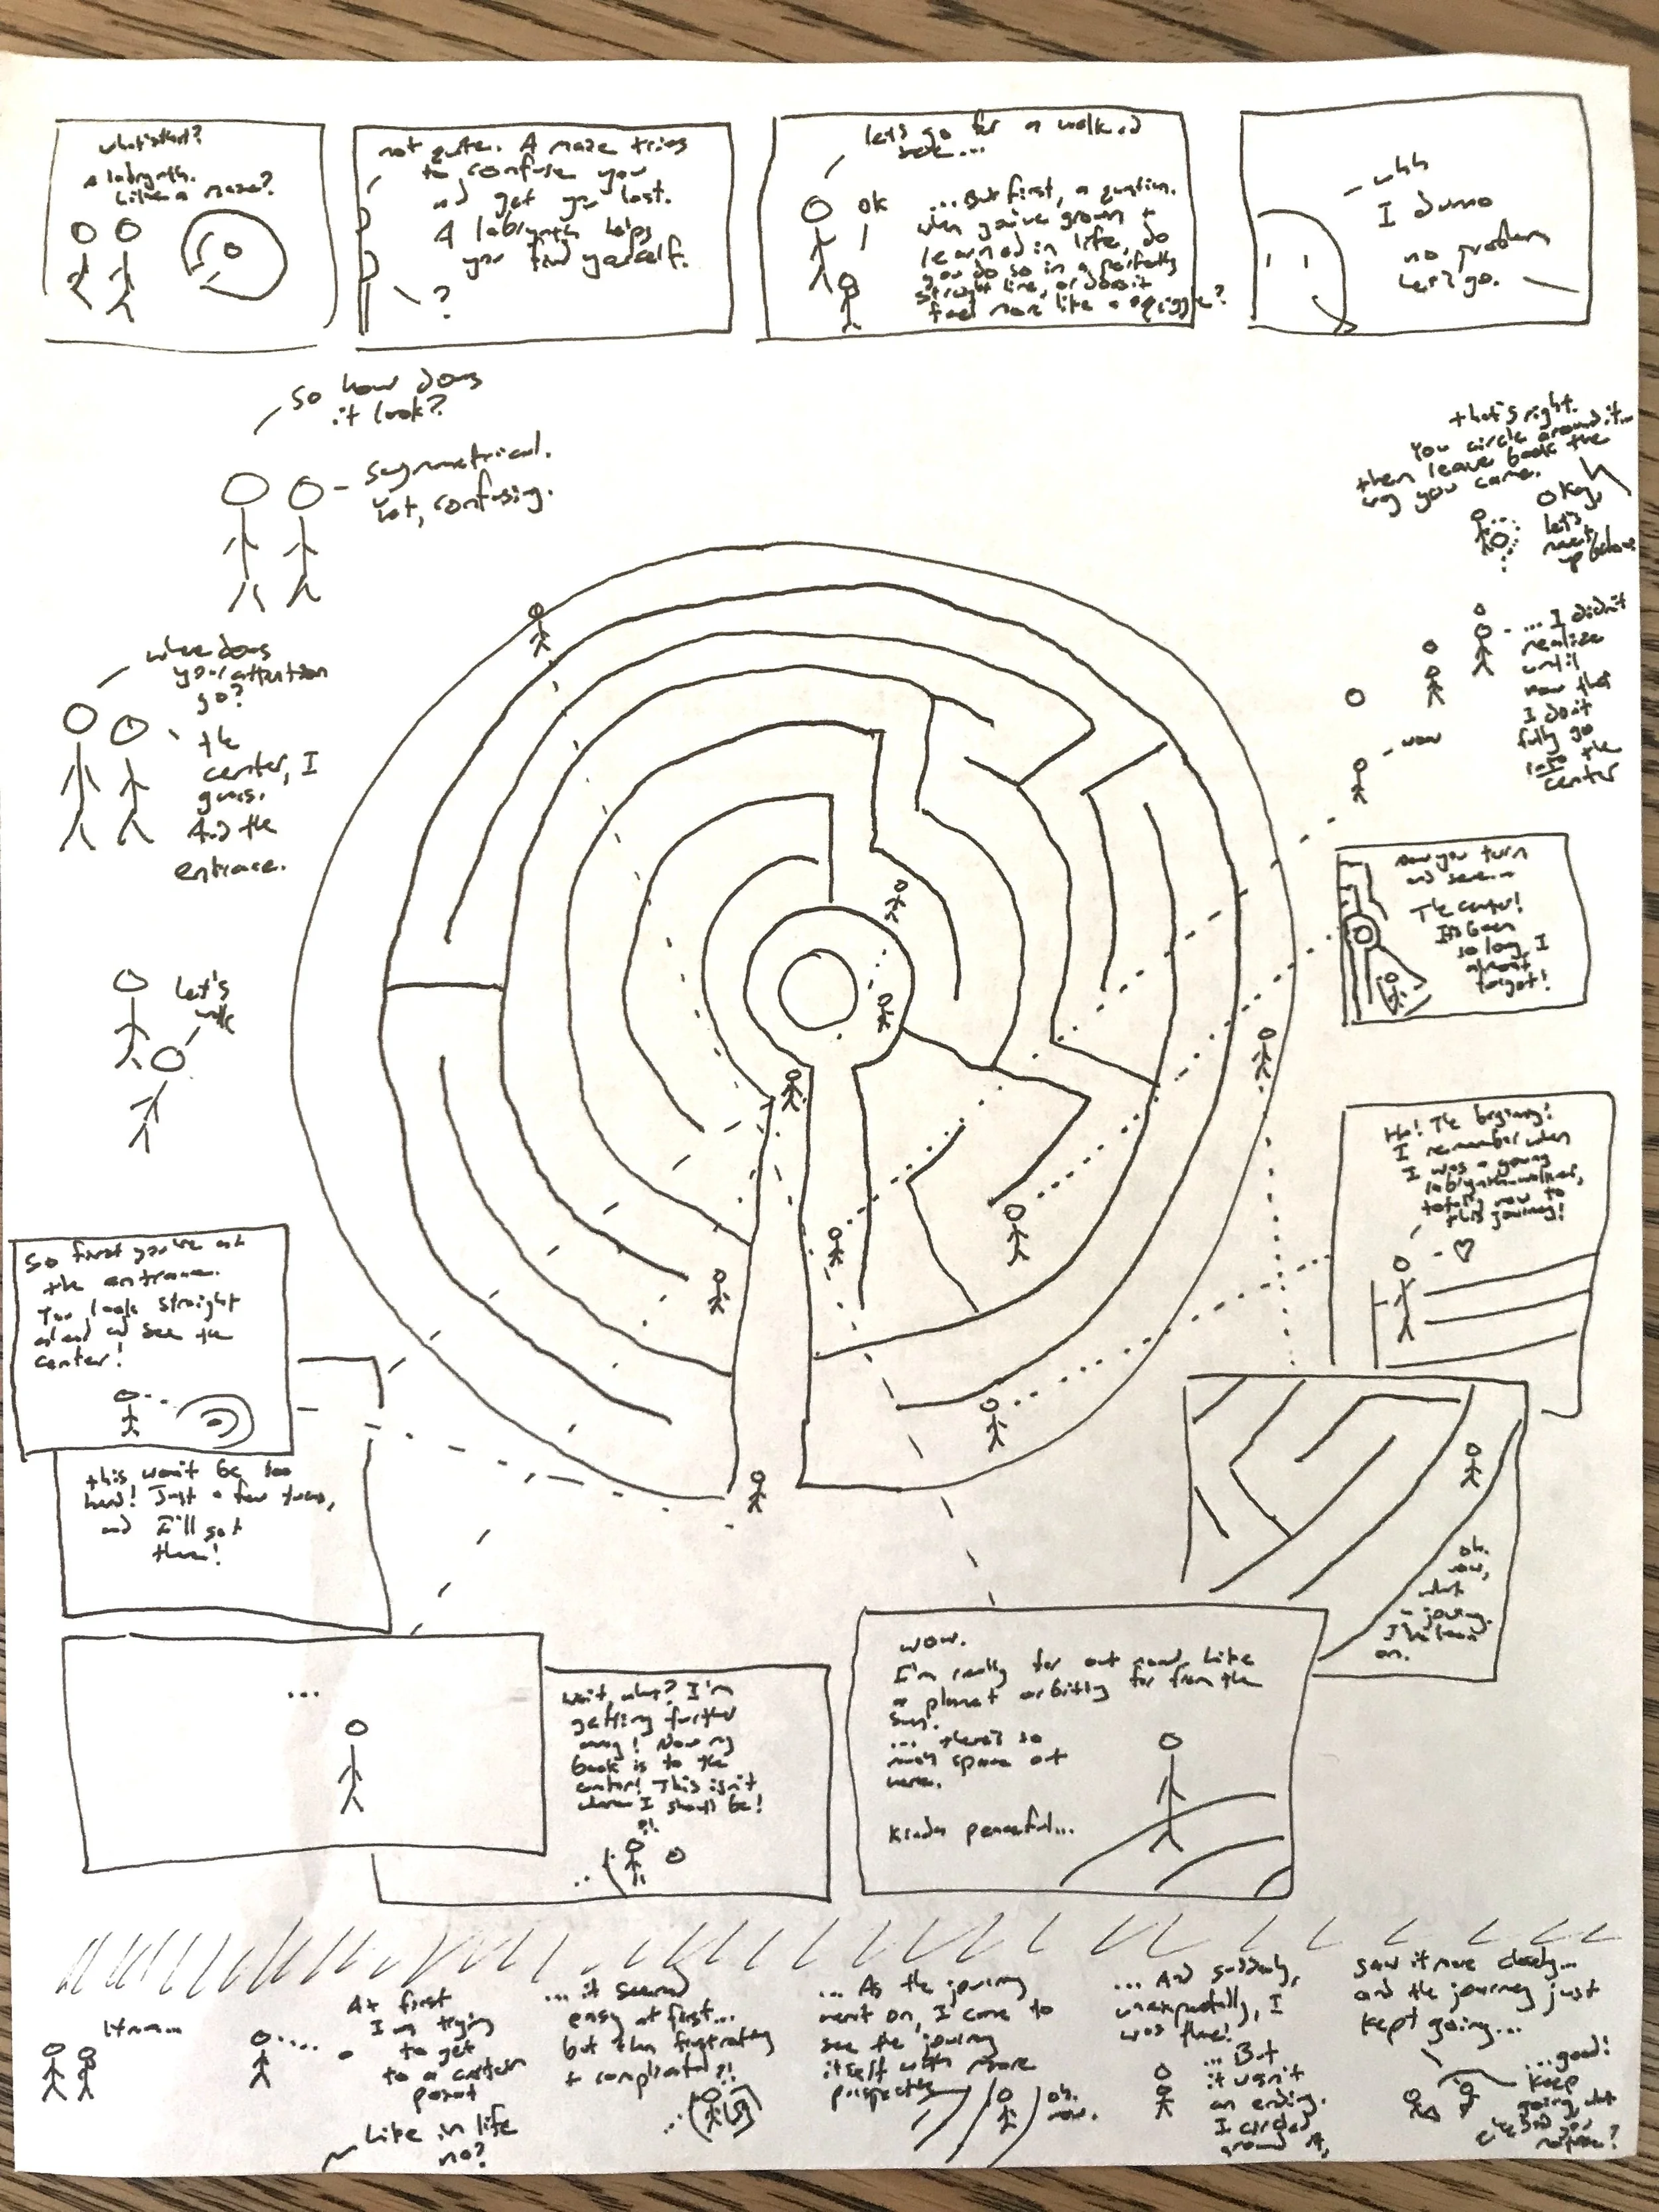 what's that?
A labrynth.
Like a maze?
not quite. A maze tries
to confuse you
and get you lost.
A labrynth helps
you find yourself.
?
let's go for a walk and
see...
OK
...But first, a question.
when you've grown +
learned in life, do
you do so in a perfectly
straight line, or does it
feel more like a squiggle?
uhh
I dunno
no problem
let's go.
So how does
it look?
Symmetrical.
Yet, confusing.
where does
your attention
go?
the
center, I
guess.
And the
entrace.
let's
walk
So first you're at
the entrance.
You look straight
ahead and see the
center!
this won't be too
hard! Just a few turns,
and I'll get
there!
...
wait, what? I'm
getting further
away! Now my
back is to the
center! This isn't
where I should be!
?!
wow.
I'm really far out now. Like
a planet orbiting far from the
sun.
... there's so
much space out
here.
Kinda peaceful...
oh.
wow,
what
a journey
I've been
on.
Ha! The beginning!
I remember when
I was a young
labrynth-walker,
totally new to
this journey!
now you turn
and see...
The center!
It's been
so long, I
almost
forgot!
wow
... I didn't
realize
until
now that
I don't
fully go
into the
center
that's right.
You circle around it...
then leave back the
way you came.
Okay,
let's
meet
up below
Hmm...
At first
I'm trying
to get
to a certain
point
Like in life
no?
... it seemed
easy at first...
but then frustrating
+ complicated ?!
... As the journey
went on, I came to
see the journey
itself with more
perspective
oh.
wow.
... And suddenly,
unexpectedly, I
was there!
... But
it wasn't
an ending.
I circled
around it,
saw it more closely...
and the journey just
kept going...
...good!
keep
going, what
else did you
notice?